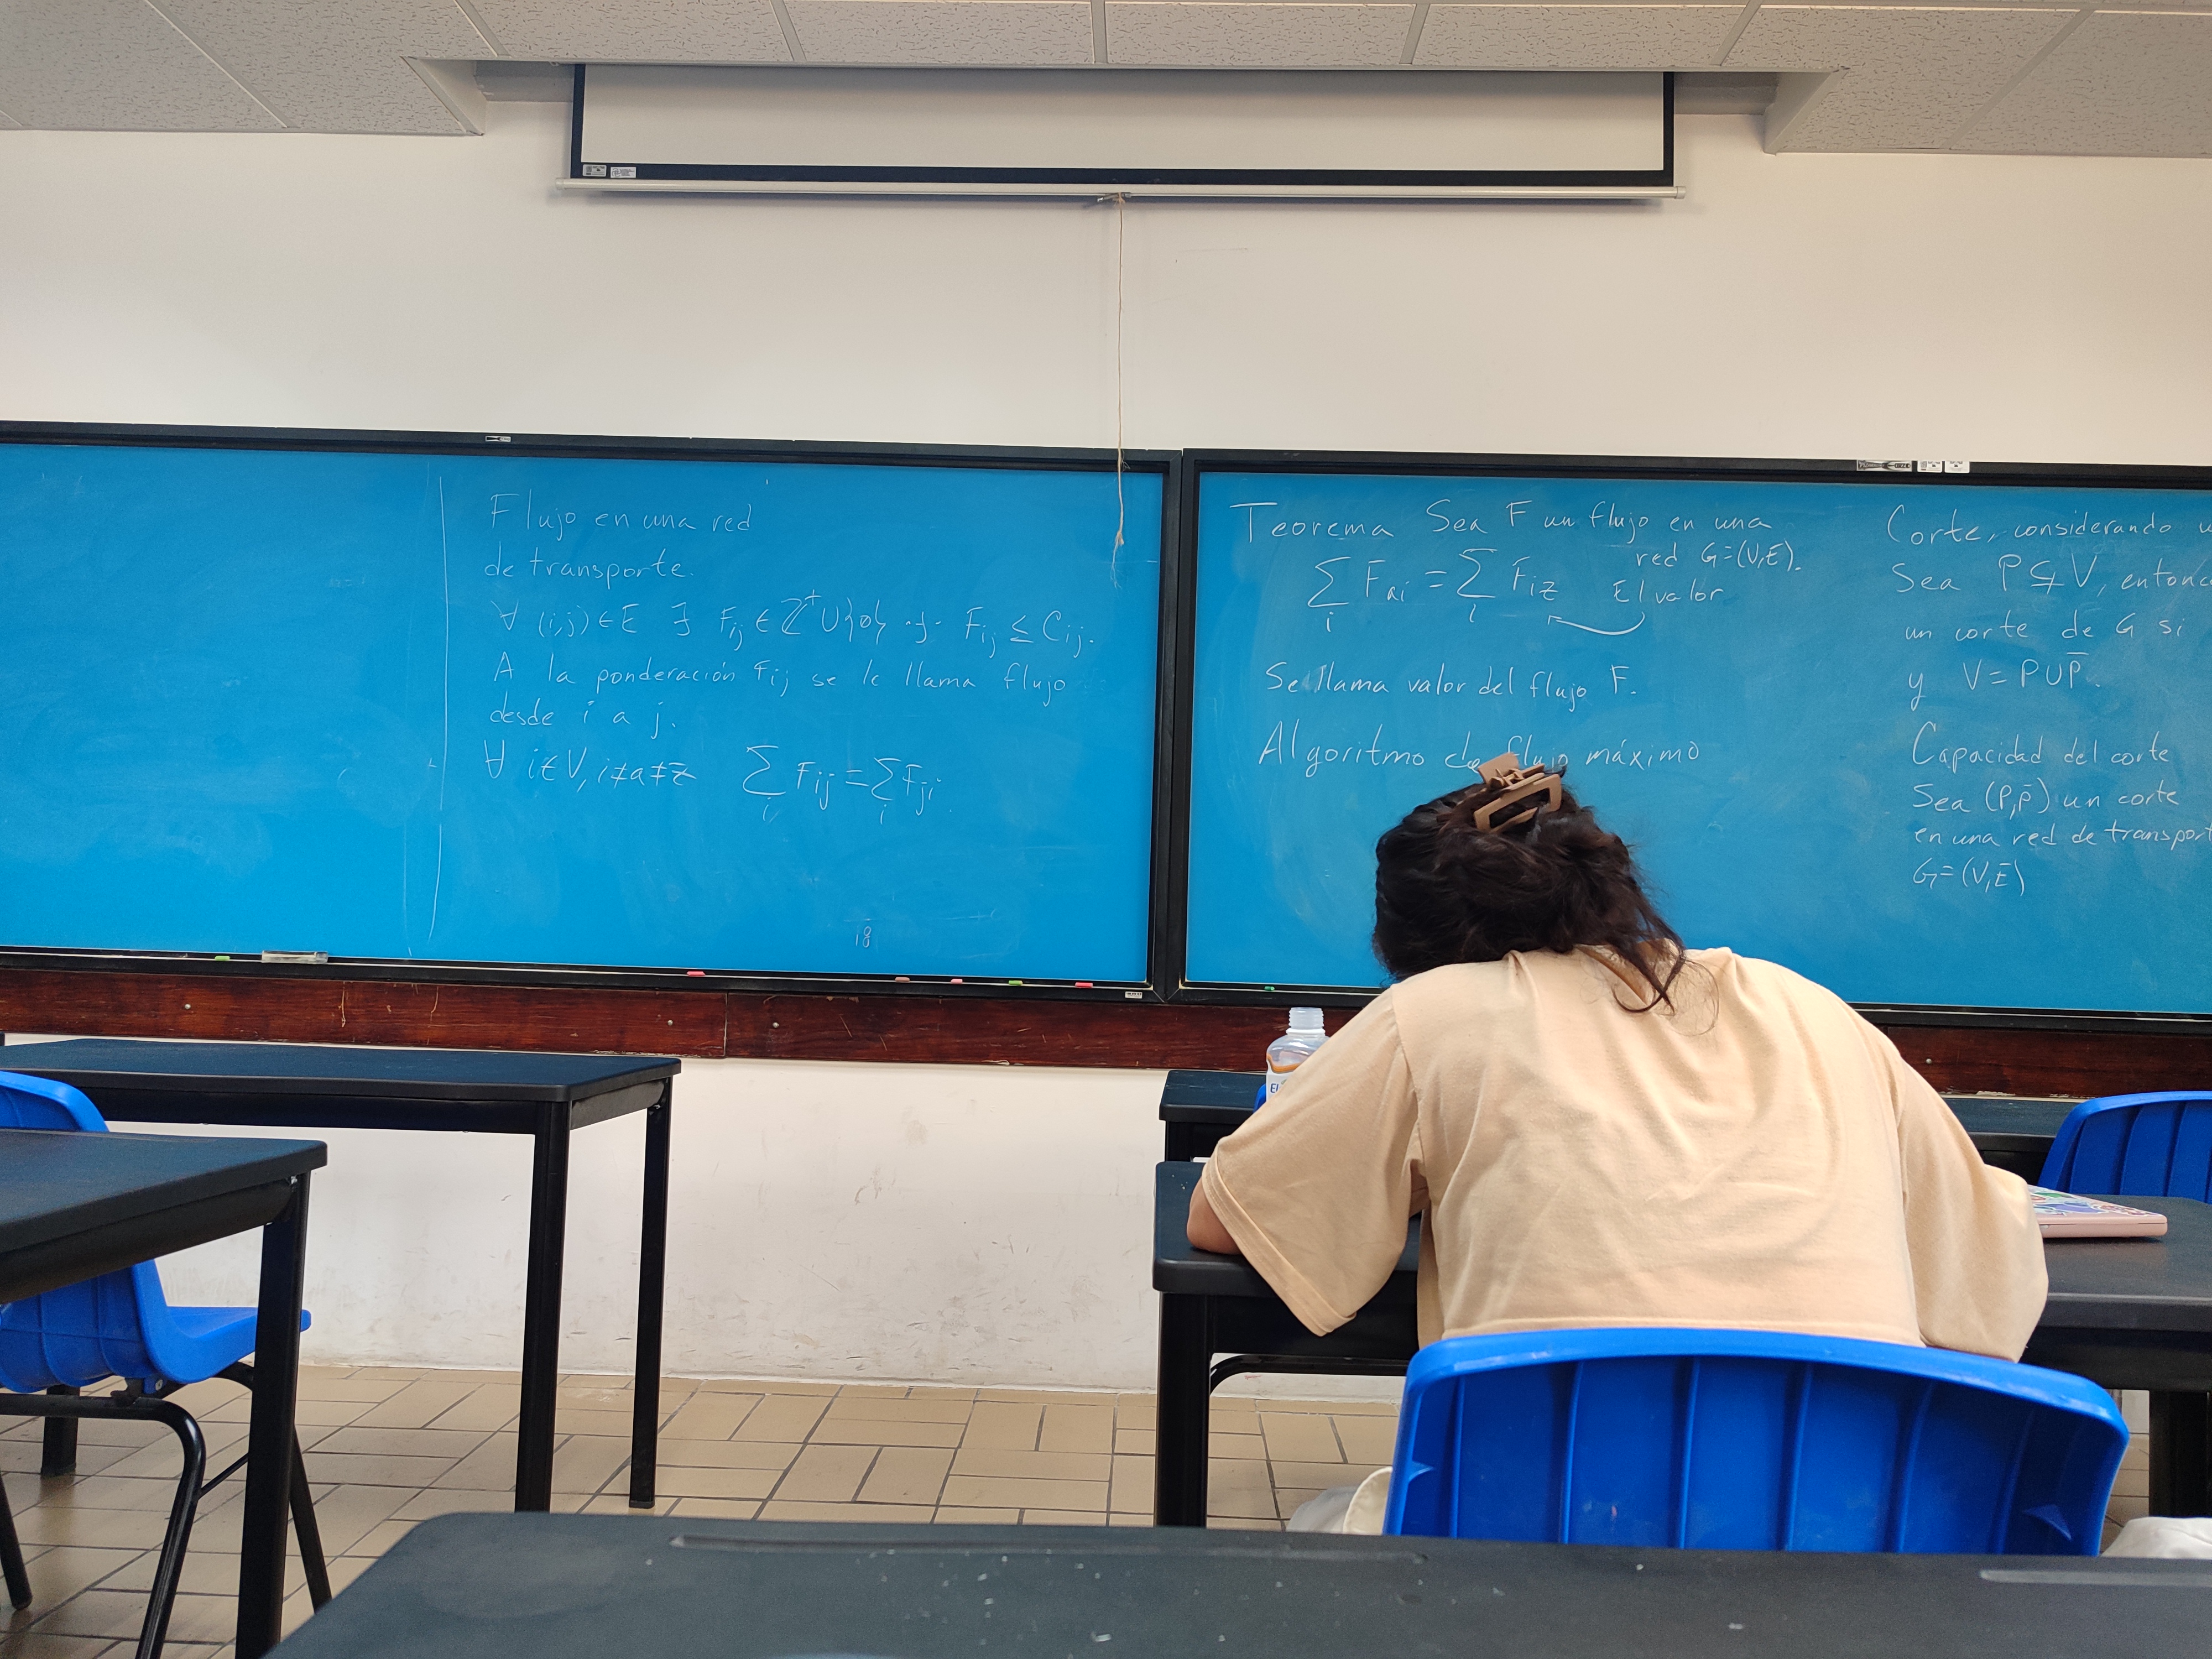 Flujo en una red
de transporte.
∀ (i,j)∈E ∃ Fij ∈ Z⁺∪{0} ·}· Fij ≤ Cij.
A la ponderación Fij se le llama flujo
desde i a j.
∀ i∈V, i≠a≠z ∑i Fij = ∑i Fji.
Teorema Sea F un flujo en una
red G=(V,E).
∑i Fai = ∑i Fiz El valor
Se llama valor del flujo F.
Algoritmo de flujo máximo
Corte, considerando
Sea P⊊V, entonc
un corte de G si
y V = P∪P̄.
Capacidad del corte
Sea (P,P̄) un corte
en una red de transport
G=(V,E)